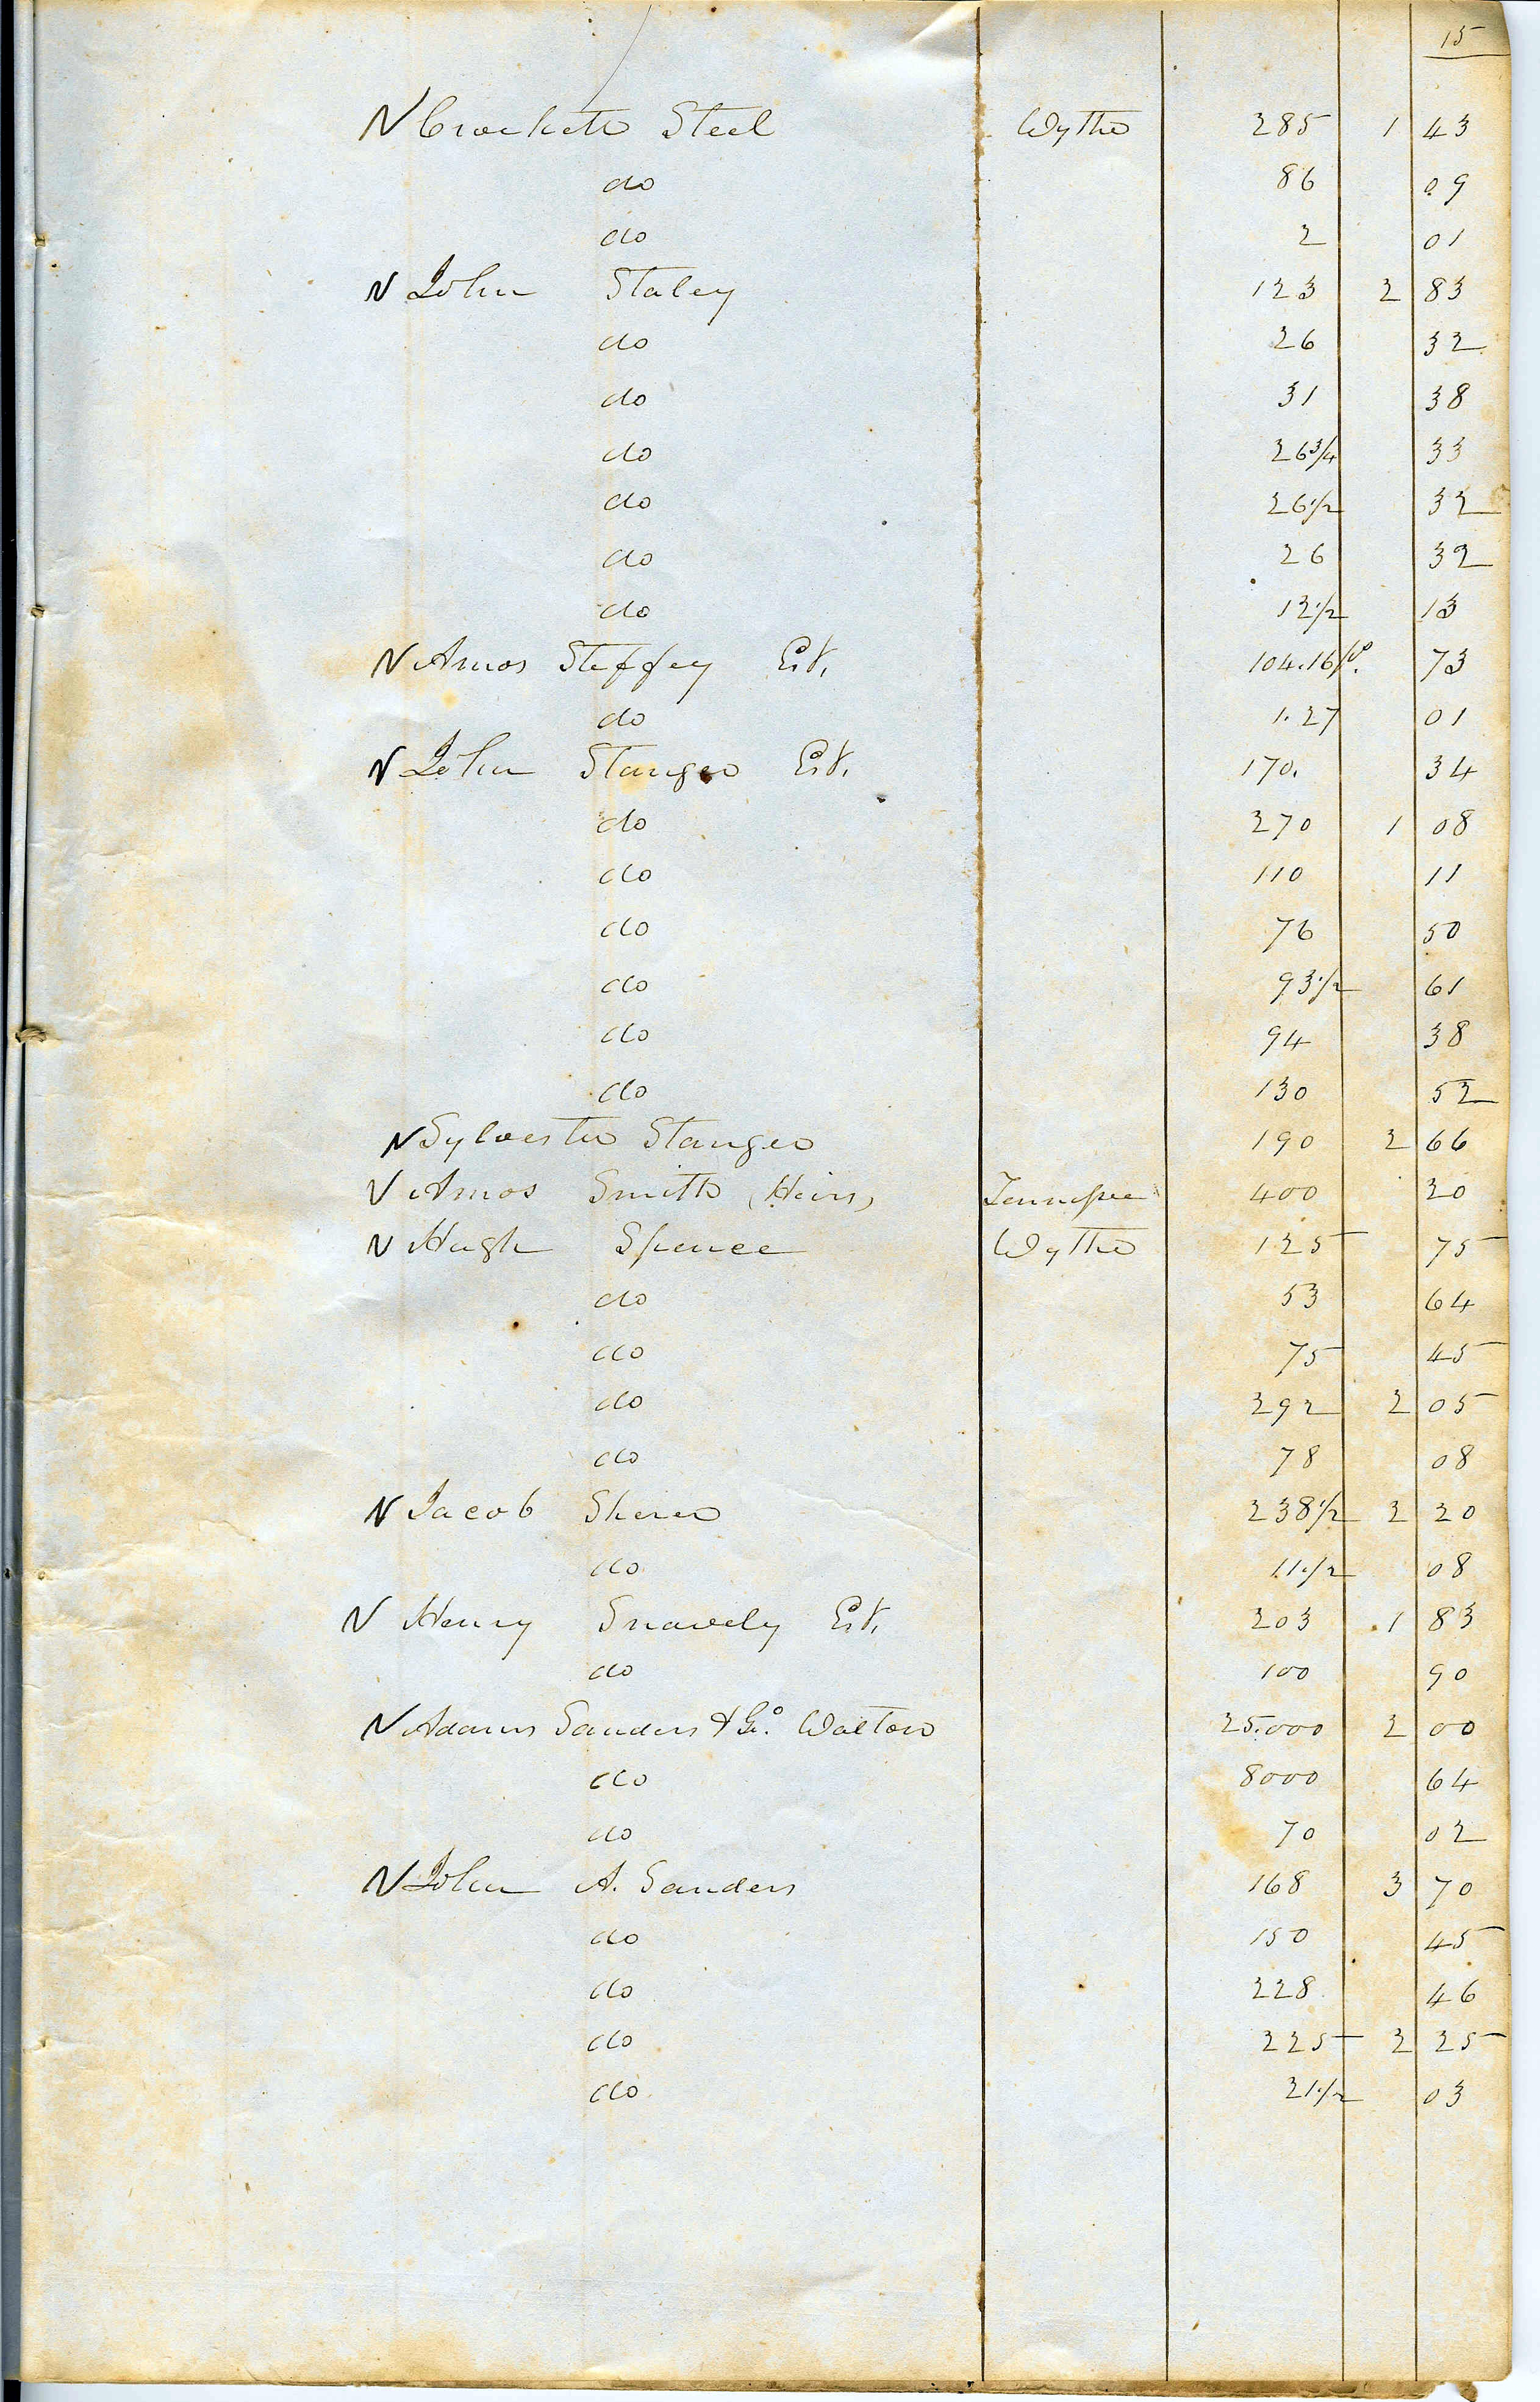 15
N Crockett Steel Wythe 285 1 43
do 86 09
do 2 01
N John Staley 123 2 83
do 26 32
do 31 38
do 26 3/4 33
do 26 1/2 32
do 26 32
do 12 1/2 13
N Amos Steffey Est. 104.16 p. 73
do 1.27 01
N John Stanger Est. 170. 34
do 270 1 08
do 110 11
do 76 50
do 93 1/2 61
do 94 38
do 130 52
N Sylvester Stanger 190 2 66
V Amos Smith (Heirs) Tennessee 400 20
N Hugh Spence Wythe 125 75
do 53 64
do 75 45
do 292 2 05
do 78 08
N Jacob Sherer 238 1/2 2 20
do 11 1/2 08
N Henry Snavely Est. 203 1 83
do 100 90
N Adams Sanders & Go. Walton 25.000 2 00
do 8000 64
do 70 02
N John A. Sanders 168 3 70
do 150 45
do 228 46
do 225 2 25
do 21 1/2 03